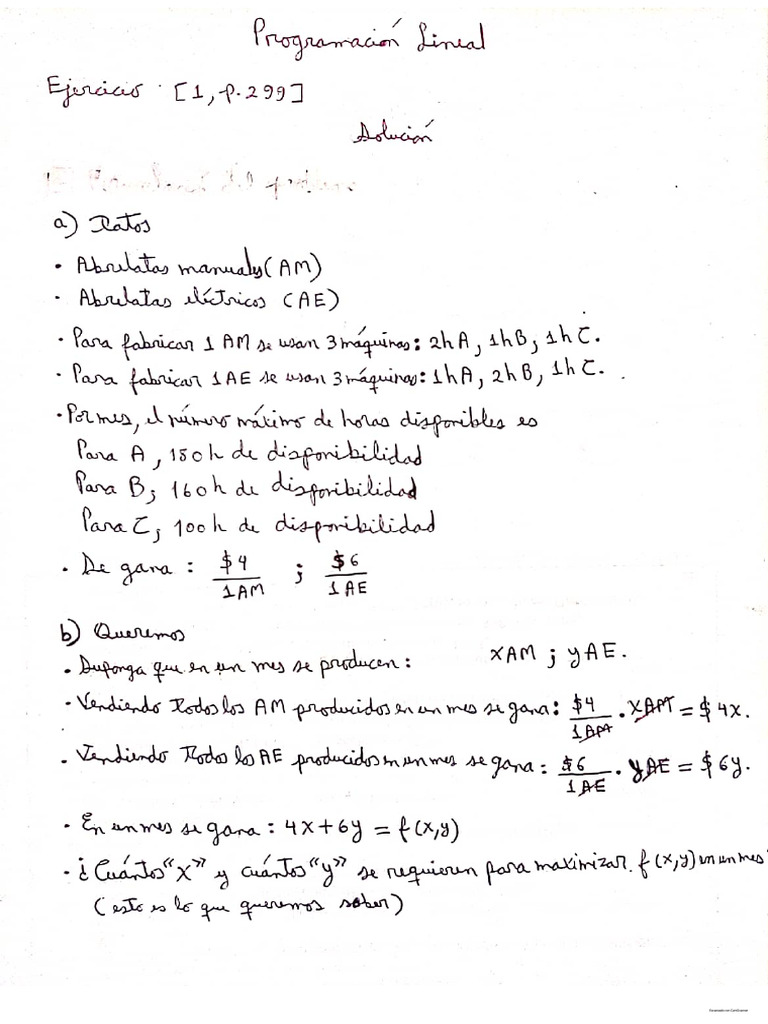 Programación Lineal
Ejercicio: [1, p.299]
Solución
a) Datos
• Abrelatas manuales (AM)
• Abrelatas eléctricos (AE)
• Para fabricar 1 AM se usan 3 máquinas: 2hA, 1hB, 1hC.
• Para fabricar 1AE se usan 3 máquinas: 1hA, 2hB, 1hC.
• Por mes, el número máximo de horas disponibles es
Para A, 180h de disponibilidad
Para B, 160h de disponibilidad
Para C, 100h de disponibilidad
• Se gana: $4/1AM ; $6/1AE
b) Queremos
• Suponga que en un mes se producen: xAM ; yAE.
• Vendiendo todos los AM producidos en un mes se gana: $4/1AM . xAM = $4x.
• Vendiendo todos lo AE producidos en un mes se gana: $6/1AE . yAE = $6y.
• En un mes se gana: 4x+6y = f(x,y)
• ¿Cuántos "x" y cuántos "y" se requieren para maximizar f(x,y) en un mes?
(esto es lo que queremos saber)